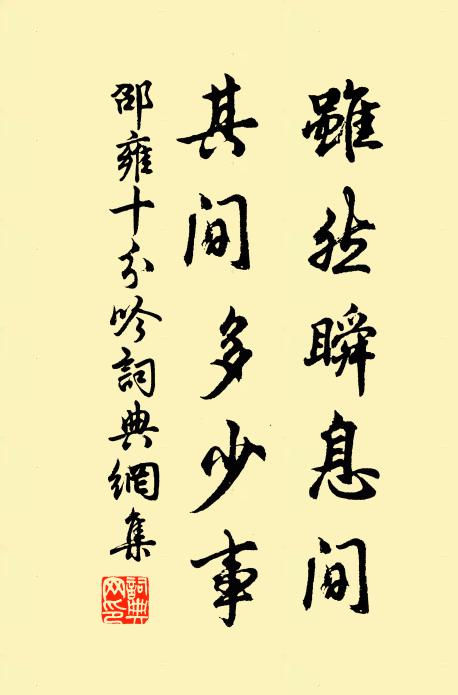 雖然瞬息間
其間多少事
邵雍十分吟詞典網集
詞典網印